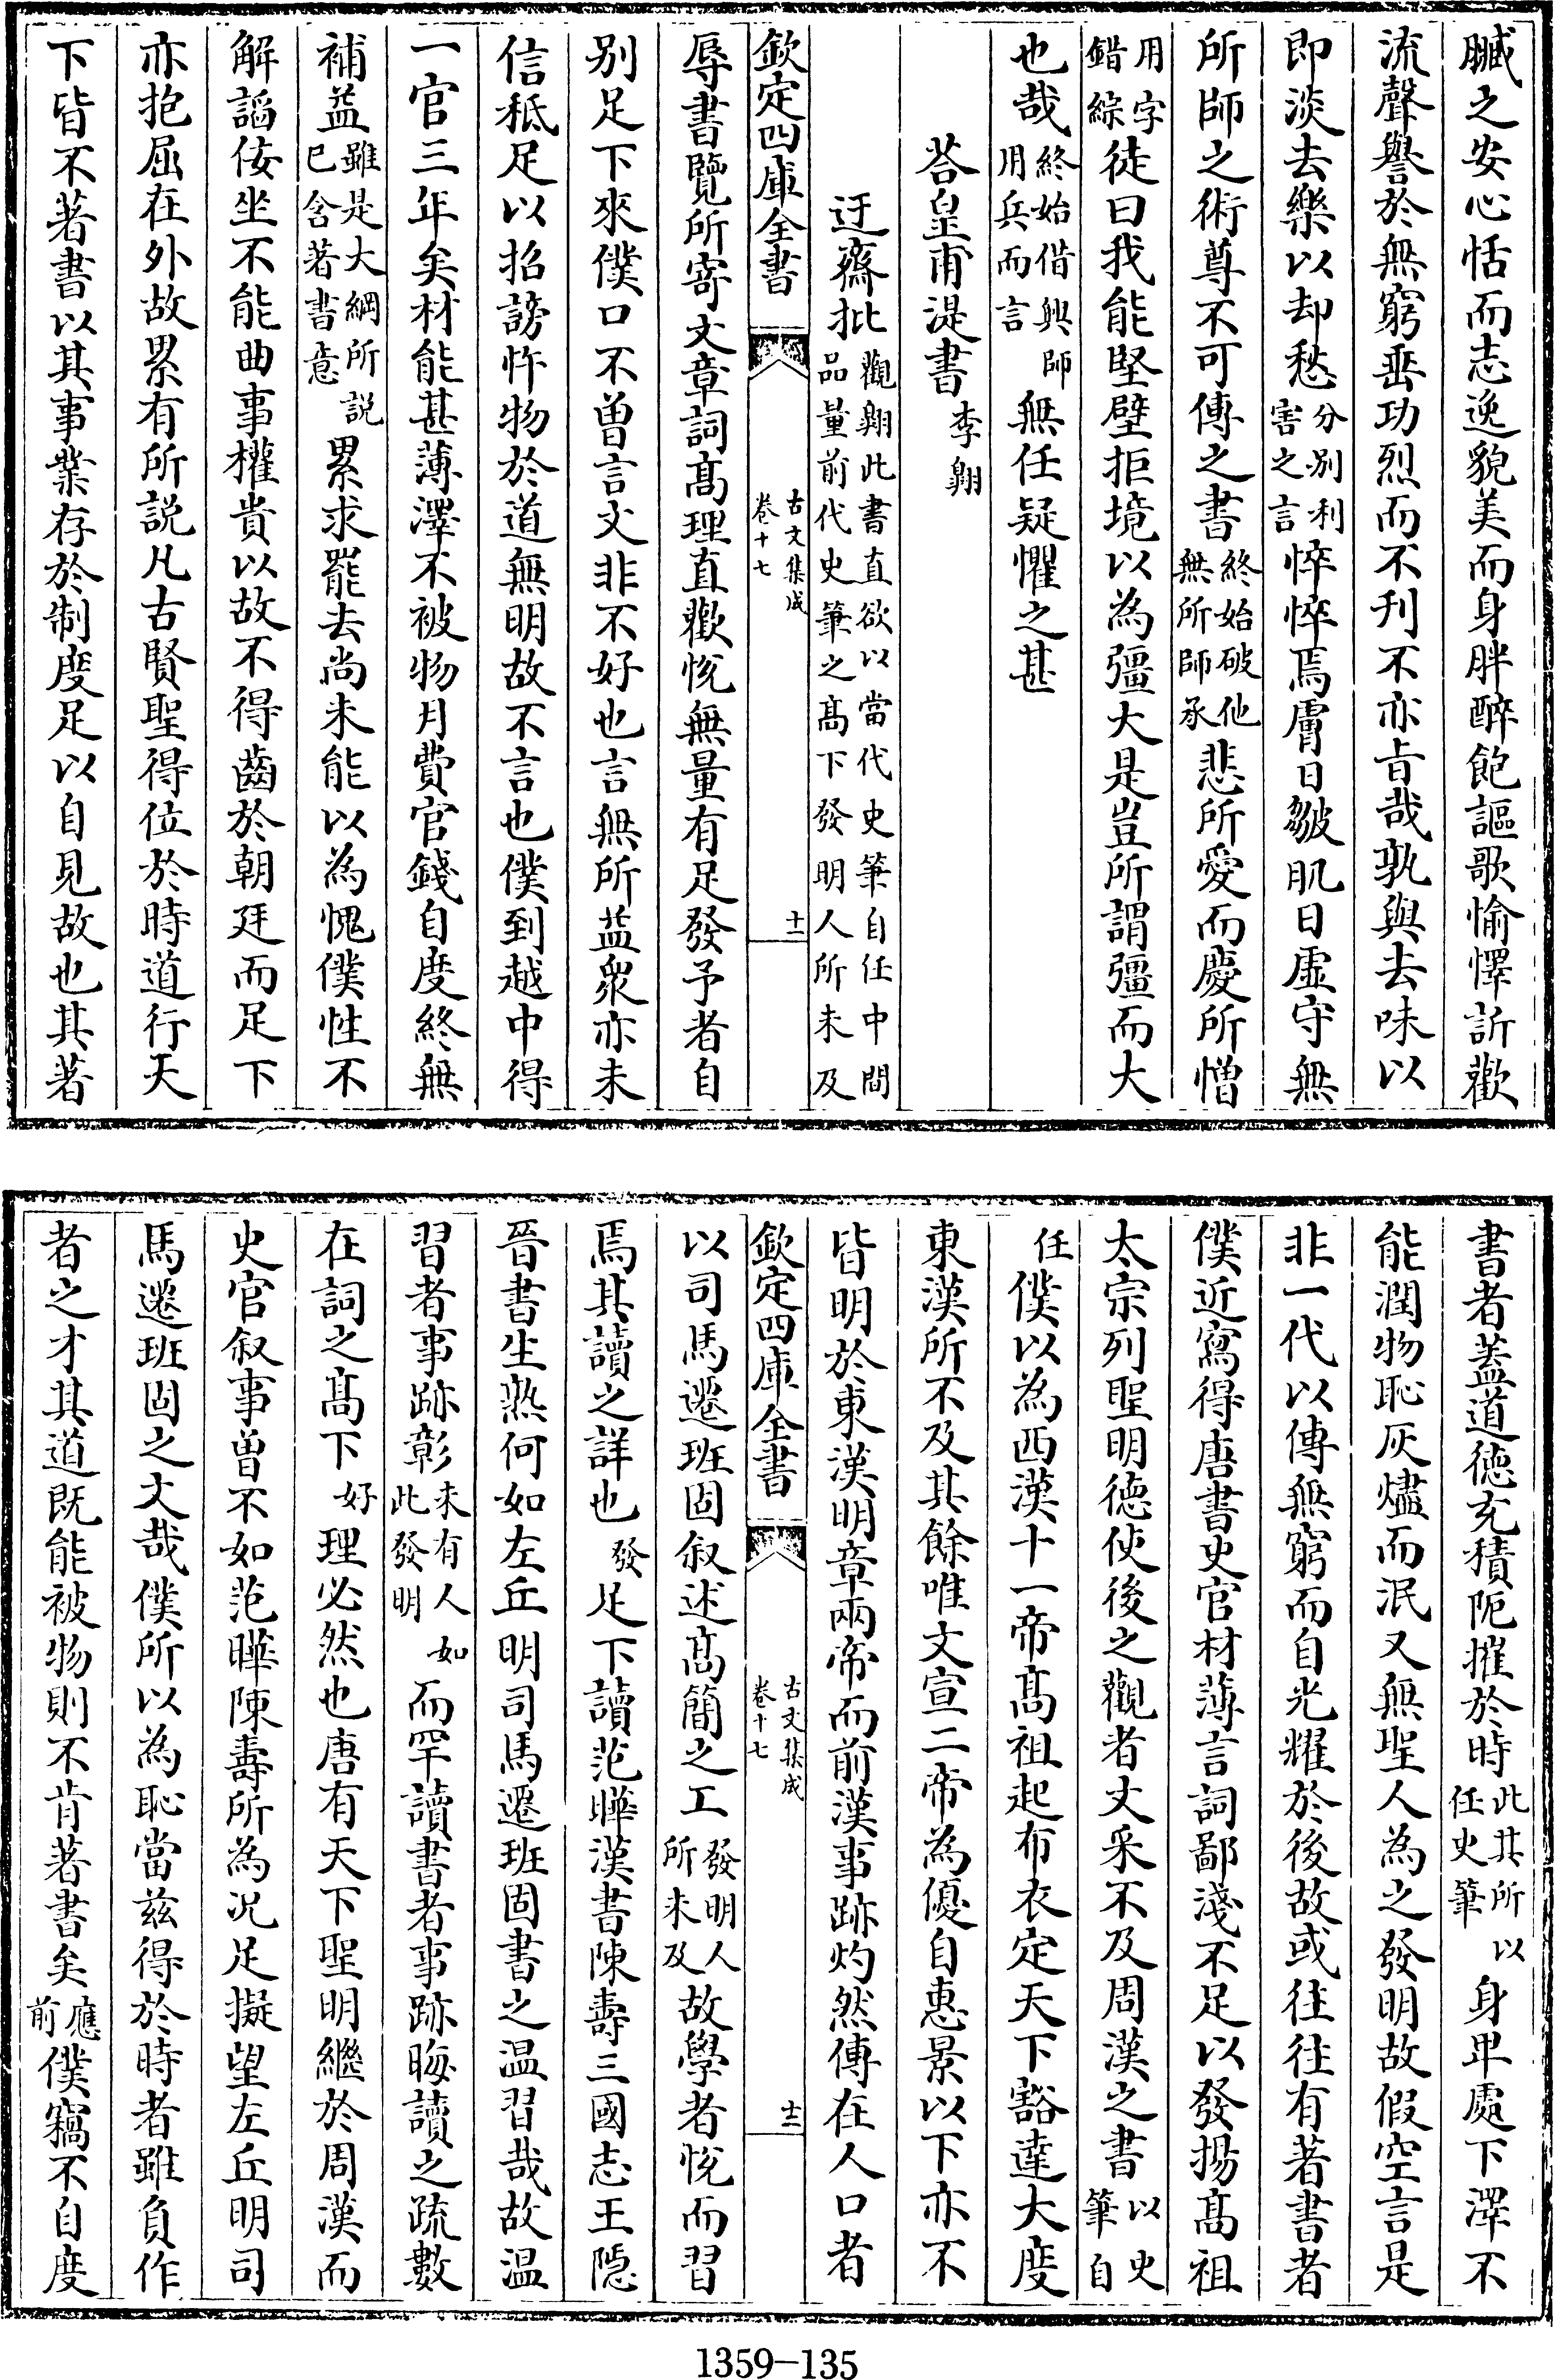 臟之安心恬而志逸貌美而身胖醉飽謳歌愉懌訢歡
流聲譽於無窮垂功烈而不刋不亦㫖哉孰與去味以
即淡去樂以却愁分别利害之言悴悴焉膚日皺肌日虚守無
所師之術尊不可傳之書終始破他無所師承悲所愛而慶所憎
用字錯綜徒曰我能堅壁拒境以為彊大是豈所謂彊而大
也哉終始借興師用兵而言無任疑懼之甚
荅皇甫湜書李翺
迂齋批觀翺此書直欲以當代史筆自任中間品量前代史筆之髙下發明人所未及
欽定四庫全書
古文集成
卷十七
十一
辱書覽所寄文章詞髙理直歡悦無量有足發予者自
别足下來僕口不曾言文非不好也言無所益衆亦未
信秪足以招謗忤物於道無明故不言也僕到越中得
一官三年矣材能甚薄澤不被物月費官錢自度終無
補益雖是大綱所説已含著書意累求罷去尚未能以為愧僕性不
解謟佞坐不能曲事權貴以故不得齒於朝廷而足下
亦抱屈在外故累有所説凡古賢聖得位於時道行天
下皆不著書以其事業存於制度足以自見故也其著
書者蓋道徳充積阨摧於時此其所以任史筆身卑處下澤不
能潤物恥灰燼而泯又無聖人為之發明故假空言是
非一代以傳無窮而自光耀於後故或往往有著書者
僕近寫得唐書史官材薄言詞鄙淺不足以發揚髙祖
太宗列聖明徳使後之觀者文采不及周漢之書以史筆自
任僕以為西漢十一帝髙祖起布衣定天下豁達大度
東漢所不及其餘唯文宣二帝為優自惠景以下亦不
皆明於東漢明章兩帝而前漢事跡灼然傳在人口者
欽定四庫全書
古文集成
卷十七
十二
以司馬遷班固叙述髙簡之工發明人所未及故學者悦而習
焉其讀之詳也發足下讀范曄漢書陳壽三國志王隠
晉書生熟何如左丘明司馬遷班固書之温習哉故温
習者事跡彰未有人如此發明而罕讀書者事跡晦讀之疏數
在詞之髙下好理必然也唐有天下聖明繼於周漢而
史官叙事曾不如范曄陳壽所為况足擬望左丘明司
馬遷班固之文哉僕所以為恥當兹得於時者雖負作
者之才其道既能被物則不肯著書矣應前僕竊不自度
1359-135